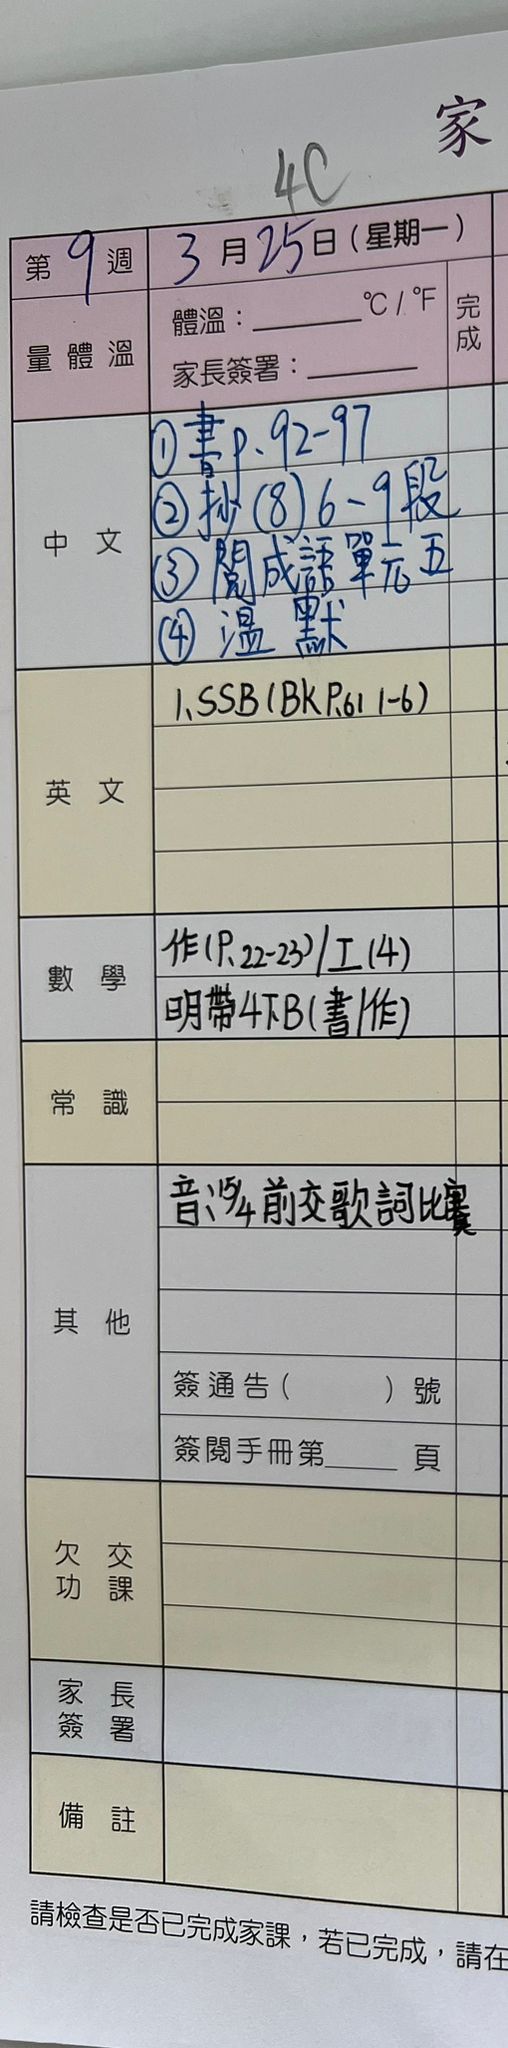 家
4C
第9週 3月25日(星期一)
量體溫 體溫：______°C/°F 完成
家長簽署：______
中文 ①書p.92-97
②抄(8)6-9段
③閱成語單元五
④溫默
英文 1.SSB(BK P.61 1-6)
數學 作(P.22-23)/工(4)
明帶4下B(書/作)
常識
其他 音：15/4前交歌詞比賽
簽通告( )號
簽閱手冊第____頁
欠交功課
家長簽署
備註
請檢查是否已完成家課，若已完成，請在